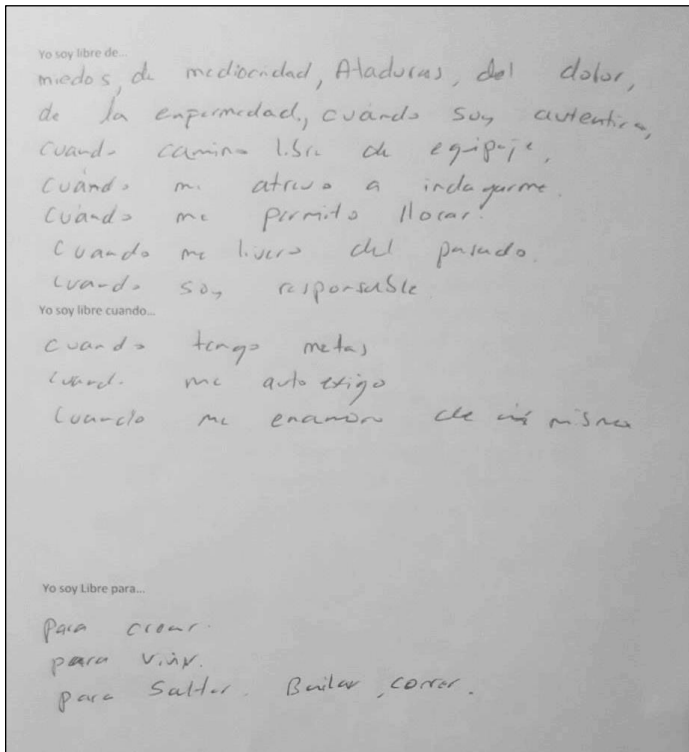 Yo soy libre de...
miedos, de mediocridad, Ataduras, del dolor,
de la enfermedad, cuándo soy autentica,
cuando camino libre de equipaje,
cuándo me atrevo a indagarme.
cuándo me permito llorar.
cuando me livero del pasado.
cuando soy responsable
Yo soy libre cuando...
cuando tengo metas
cuando me auto exigo
cuando me enamoro de mí misma
Yo soy Libre para...
para crear.
para vivir.
para Saltar. Bailar, correr.